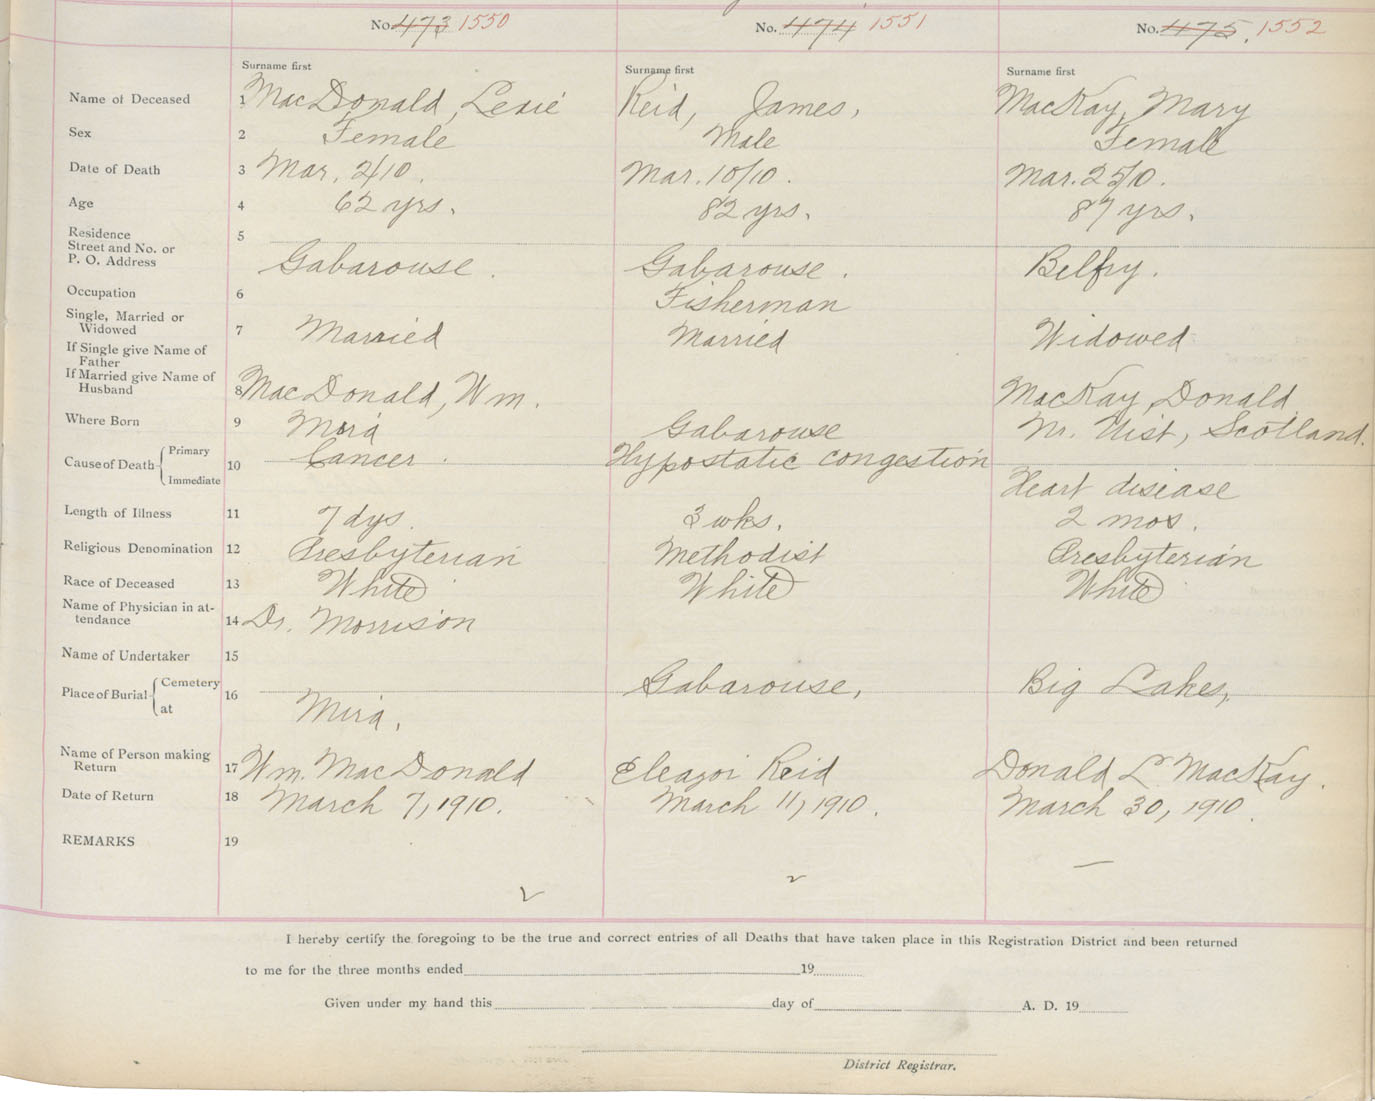 No. 473 1550 No. 474 1551 No. 475. 1552
Surname first Surname first Surname first
Name of Deceased 1 MacDonald, Lexie Reid, James, MacKay, Mary
Sex 2 Female Male Female
Date of Death 3 Mar. 2/10. Mar. 10/10. Mar. 25/10.
Age 4 62 yrs. 82 yrs. 87 yrs.
Residence 5
Street and No. or
P. O. Address Gabarouse. Gabarouse. Belfry.
Occupation 6 Fisherman
Single, Married or
Widowed 7 Married Married Widowed
If Single give Name of
Father
If Married give Name of
Husband 8 MacDonald, Wm. MacKay, Donald
Where Born 9 Mira Gabarouse Nr. Uist, Scotland.
Cause of Death Primary 10 Cancer. Hypostatic congestion
Immediate Heart disease
Length of Illness 11 7 dys. 3 wks. 2 mos.
Religious Denomination 12 Presbyterian Methodist Presbyterian
Race of Deceased 13 White White White
Name of Physician in at-
tendance 14 Dr. Morrison
Name of Undertaker 15
Place of Burial Cemetery 16 Gabarouse, Big Lakes,
at Mira,
Name of Person making
Return 17 Wm. MacDonald Reid Donald L MacKay.
Date of Return 18 March 7, 1910. March 11, 1910. March 30, 1910.
REMARKS 19
I hereby certify the foregoing to be the true and correct entries of all Deaths that have taken place in this Registration District and been returned
to me for the three months ended 19
Given under my hand this day of A. D. 19
District Registrar.